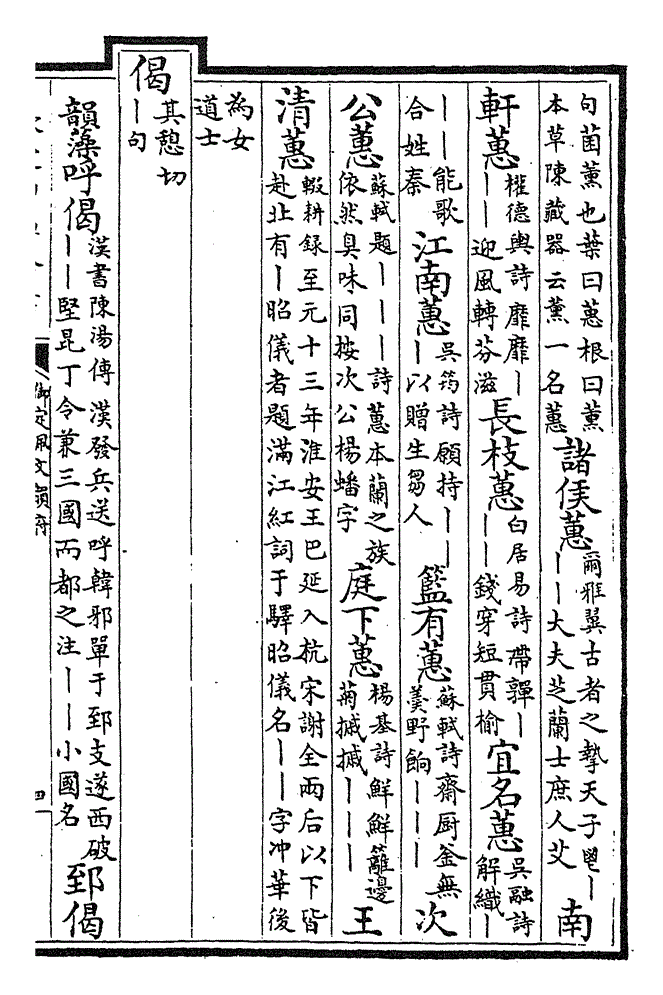 句茵薰也葉曰蕙根曰薰
本草陳藏器云薰一名蕙
諸侯蕙
爾雅翼古者之摯天子鬯丨
丨丨大夫芝蘭士庶人艾
南
軒蕙
權德輿詩靡靡丨
丨丨迎風轉芬滋
長枝蕙
白居易詩帶嚲丨
丨丨錢穿短貫榆
宜名蕙
吳融詩
解織丨
丨丨能歌
合姓秦
江南蕙
吳筠詩願持丨丨
丨以贈生芻人
籃有蕙
蘇軾詩齋厨釜無
羮野餉丨丨丨
次
公蕙
蘇軾題丨丨丨詩蕙本蘭之族
依然臭味同按次公楊蟠字
庭下蕙
楊基詩鮮鮮籬邊
菊摵摵丨丨丨
王
清蕙
輟耕録至元十三年淮安王巴延入杭宋謝全兩后以下皆
赴北有丨昭儀者題滿江紅詞于驛昭儀名丨丨字冲華後
為女
道士
偈
其憩切
丨句
韻藻呼偈
漢書陳湯傳漢發兵送呼韓邪單于郅支遂西破
丨丨堅昆丁令兼三國而都之注丨丨小國名
郅偈
御定佩文韻府
四